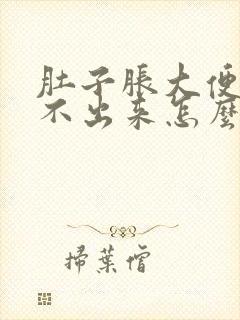 肚子脹大便
不出来怎麼
掃葉僧